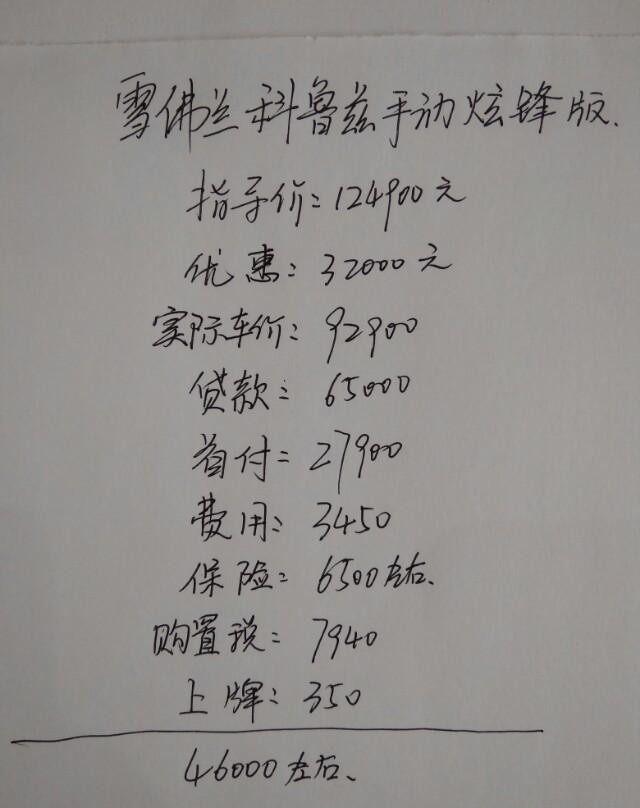 雪佛兰科鲁兹手动炫锋版.
指导价：124900元
优惠：32000元
实际车价：92900
贷款：65000
首付：27900
费用：3450
保险：6500左右.
购置税：7940
上牌：350
46000左右.